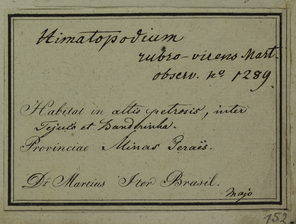 Himatopodium
rubro-virens Mart.
observ. nº 1289.
Habitat in altis petrosis, inter
Tejuco et Landorinha.
Provinciae Minas Geraës.
Dr Martius Iter Brasil.
Majo
152